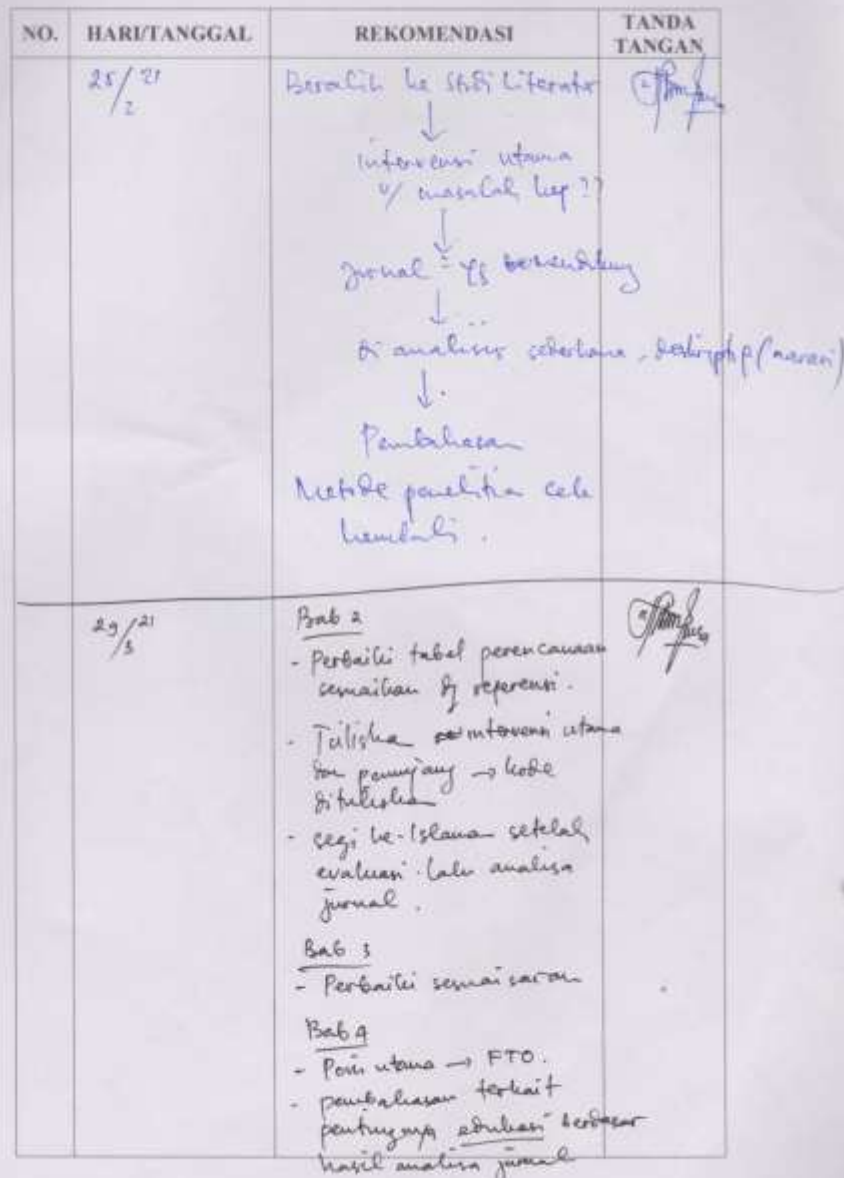 NO. HARI/TANGGAL REKOMENDASI TANDA TANGAN
25/2 21 Beralih ke Studi Literatur
↓
intervensi utama
u/ masalah kep ??
↓
Jurnal = yg mendukung
↓
di analisis sederhana, deskriptip (narasi)
↓
Pembahasan
Metode penelitian cek
kembali.
29/3 21 Bab 2
- Perbaiki tabel perencanaan
sesuaikan dg reperensi.
- Tuliska intervensi utama
dan penunjang → kode
dituliskan
- segi ke-Islaman setelah
evaluasi lalu analisa
jurnal.
Bab 3
- Perbaiki sesuai saran
Bab 4
- Poin utama → FTO.
- pembahasan terkait
pentingnya edukasi berdasar
hasil analisa jurnal